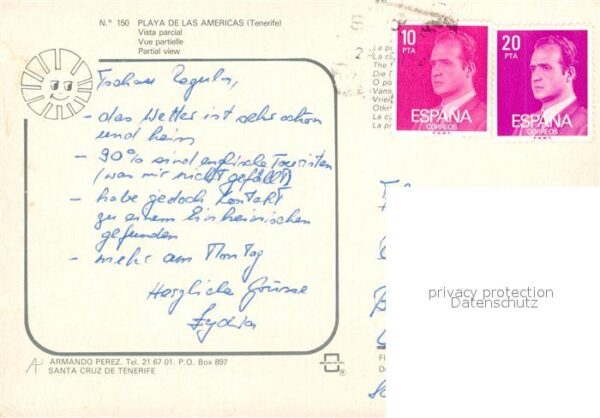 N.º 150 PLAYA DE LAS AMERICAS (Tenerife)
Vista parcial
Vue partielle
Partial view
Tschau Regula,
- das Wetter ist sehr schön
und heiss
- 90% sind englische Touristen
(was mir nicht gefällt)
- habe jedoch Kontakt
zu einem Einheimischen
gefunden
- mehr am Montag
Herzliche Grüsse
Lydia
ARMANDO PEREZ. Tel. 21 67 01. P.O. Box 897
SANTA CRUZ DE TENERIFE
10
PTA
ESPAÑA
CORREOS
20
PTA
ESPAÑA
CORREOS
privacy protection
Datenschutz